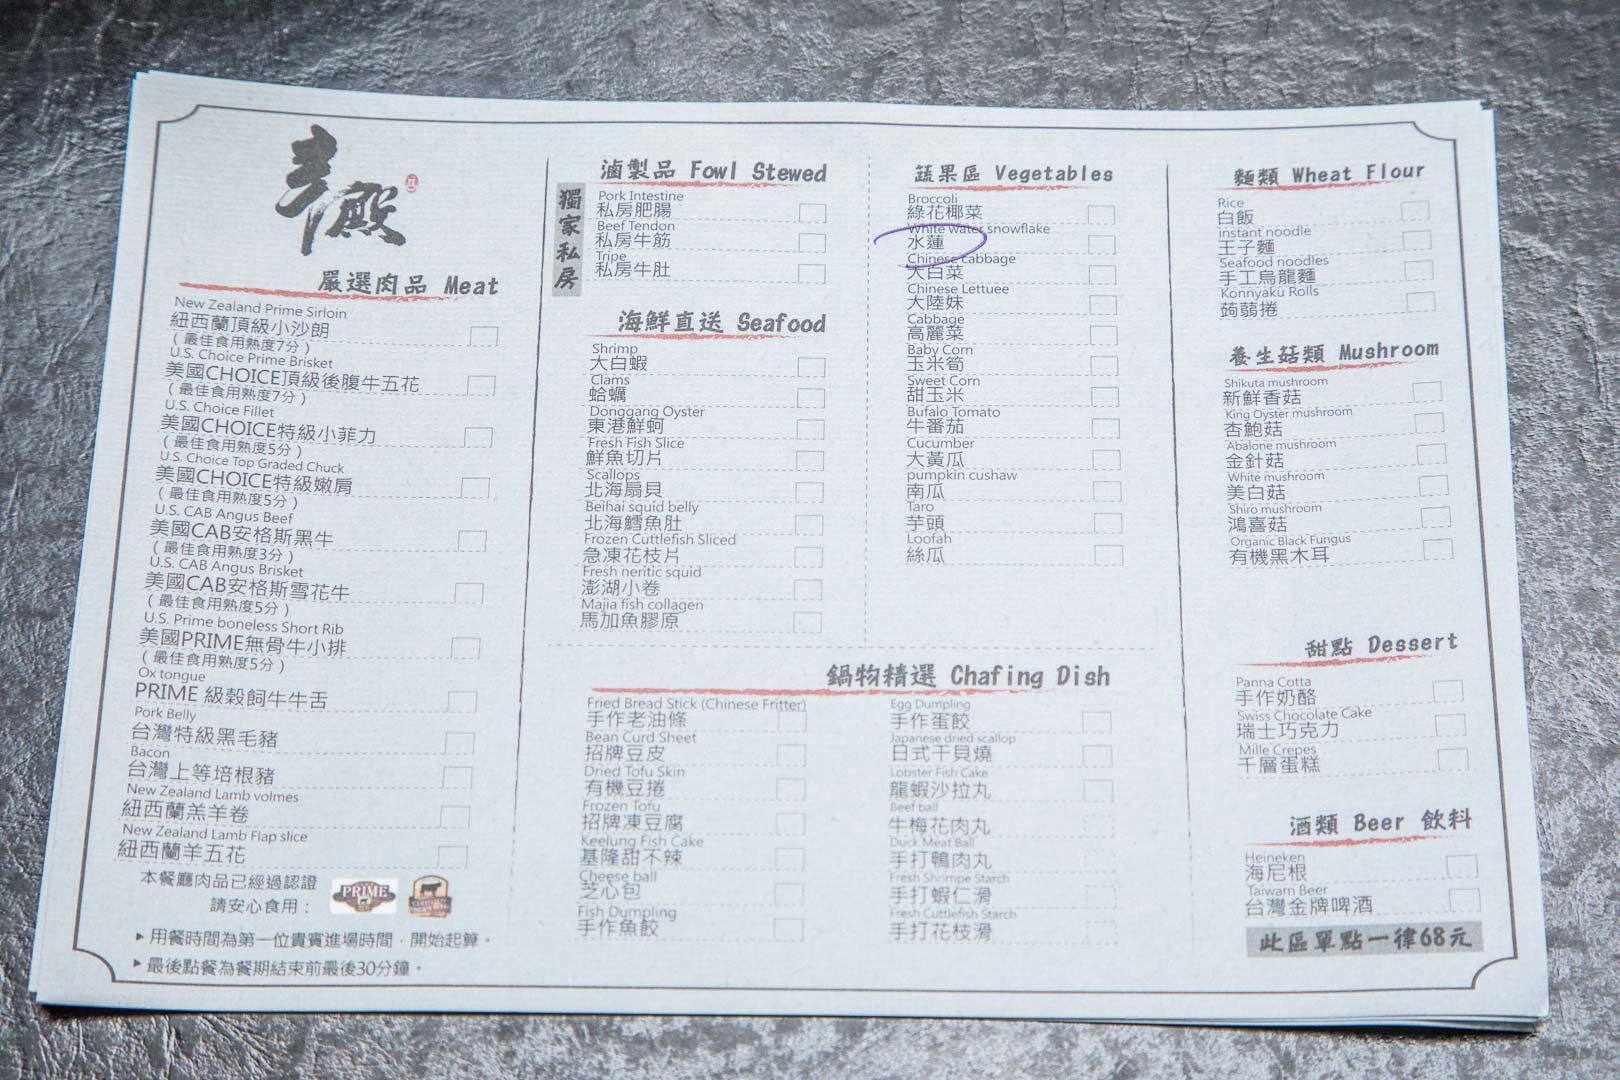 嚴選肉品 Meat
New Zealand Prime Sirloin
紐西蘭頂級小沙朗
(最佳食用熟度7分)
U.S. Choice Prime Brisket
美國CHOICE頂級後腹牛五花
(最佳食用熟度7分)
U.S. Choice Fillet
美國CHOICE特級小菲力
(最佳食用熟度5分)
U.S. Choice Top Graded Chuck
美國CHOICE特級嫩肩
(最佳食用熟度5分)
U.S. CAB Angus Beef
美國CAB安格斯黑牛
(最佳食用熟度3分)
U.S. CAB Angus Brisket
美國CAB安格斯雪花牛
(最佳食用熟度5分)
U.S. Prime boneless Short Rib
美國PRIME無骨牛小排
(最佳食用熟度5分)
Ox tongue
PRIME 級穀飼牛牛舌
Pork Belly
台灣特級黑毛豬
Bacon
台灣上等培根豬
New Zealand Lamb volmes
紐西蘭羔羊卷
New Zealand Lamb Flap slice
紐西蘭羊五花
本餐廳肉品已經過認證
請安心食用：
PRIME
▸用餐時間為第一位貴賓進場時間，開始起算。
▸最後點餐為餐期結束前最後30分鐘。
獨家私房
滷製品 Fowl Stewed
Pork Intestine
私房肥腸
Beef Tendon
私房牛筋
Tripe
私房牛肚
海鮮直送 Seafood
Shrimp
大白蝦
Clams
蛤蠣
Donggang Oyster
東港鮮蚵
Fresh Fish Slice
鮮魚切片
Scallops
北海扇貝
Beihai squid belly
北海鱈魚肚
Frozen Cuttlefish Sliced
急凍花枝片
Fresh neritic squid
澎湖小卷
Majia fish collagen
馬加魚膠原
蔬果區 Vegetables
Broccoli
綠花椰菜
White water snowflake
水蓮
Chinese cabbage
大白菜
Chinese Lettuee
大陸妹
Cabbage
高麗菜
Baby Corn
玉米筍
Sweet Corn
甜玉米
Bufalo Tomato
牛番茄
Cucumber
大黃瓜
pumpkin cushaw
南瓜
Taro
芋頭
Loofah
絲瓜
鍋物精選 Chafing Dish
Fried Bread Stick (Chinese Fritter)
手作老油條
Bean Curd Sheet
招牌豆皮
Dried Tofu Skin
有機豆捲
Frozen Tofu
招牌凍豆腐
Keelung Fish Cake
基隆甜不辣
Cheese ball
芝心包
Fish Dumpling
手作魚餃
Egg Dumpling
手作蛋餃
Japanese dried scallop
日式干貝燒
Lobster Fish Cake
龍蝦沙拉丸
Beef ball
牛梅花肉丸
Duck Meat Ball
手打鴨肉丸
Fresh Shrimpe Starch
手打蝦仁滑
Fresh Cuttlefish Starch
手打花枝滑
麵類 Wheat Flour
Rice
白飯
instant noodle
王子麵
Seafood noodles
手工烏龍麵
Konnyaku Rolls
蒟蒻捲
養生菇類 Mushroom
Shikuta mushroom
新鮮香菇
King Oyster mushroom
杏鮑菇
Abalone mushroom
金針菇
White mushroom
美白菇
Shiro mushroom
鴻喜菇
Organic Black Fungus
有機黑木耳
甜點 Dessert
Panna Cotta
手作奶酪
Swiss Chocolate Cake
瑞士巧克力
Mille Crepes
千層蛋糕
酒類 Beer 飲料
Heineken
海尼根
Taiwam Beer
台灣金牌啤酒
此區單點一律68元